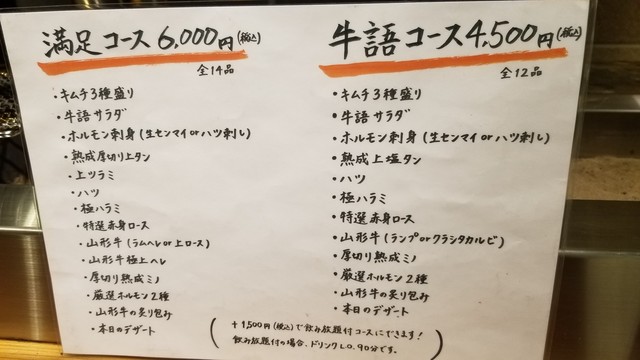 満足コース 6,000円(税込)
全14品
・キムチ3種盛り
・牛語サラダ
・ホルモン刺身(生センマイorハツ刺し)
・熟成厚切り上タン
・上ツラミ
・ハツ
・極ハラミ
・特選赤身ロース
・山形牛(ラムヘレor上ロース)
・山形牛極上ヘレ
・厚切り熟成ミノ
・厳選ホルモン2種
・山形牛の炙り包み
・本日のデザート
牛語コース4,500円(税込)
全12品
・キムチ3種盛り
・牛語サラダ
・ホルモン刺身(生センマイorハツ刺し)
・熟成上塩タン
・ハツ
・極ハラミ
・特選赤身ロース
・山形牛(ランプorクラシタカルビ)
・厚切り熟成ミノ
・厳選ホルモン2種
・山形牛の炙り包み
・本日のデザート
(+1,500円(税込)で飲み放題付コースにできます!
飲み放題付の場合、ドリンクLO.90分です。)